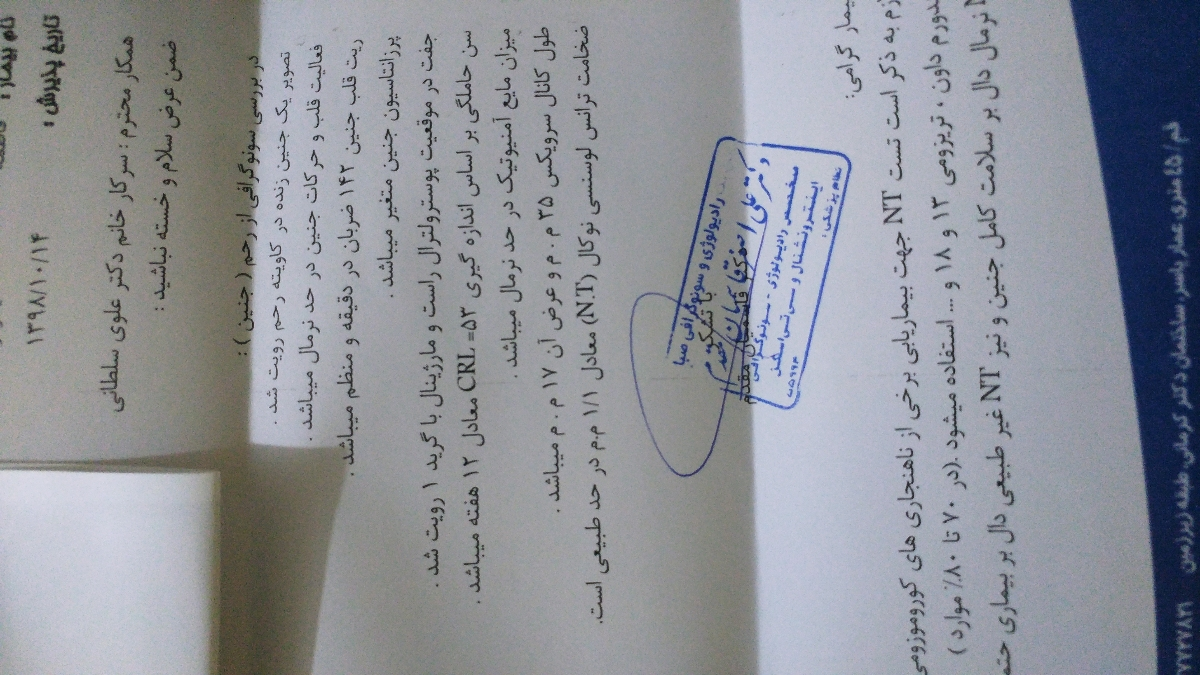 نام بیمار :
تاریخ پذیرش : ۱۳۹۸/۱۰/۱۴
همکار محترم : سرکار خانم دکتر علوی سلطانی
ضمن عرض سلام و خسته نباشید :
در بررسی سونوگرافی از رحم ( جنین ) :
تصویر یک جنین زنده در کاویته رحم رویت شد .
فعالیت قلب و حرکات جنین در حد نرمال میباشد .
ریت قلب جنین ۱۴۲ ضربان در دقیقه و منظم میباشد .
پرزانتاسیون جنین متغیر میباشد .
جفت در موقعیت پوسترولترال راست و مارژینال با گرید ۱ رویت شد .
سن حاملگی بر اساس اندازه گیری CRL =۵۳ معادل ۱۲ هفته میباشد .
میزان مایع آمنیوتیک در حد نرمال میباشد .
طول کانال سرویکس ۳۵ م . م و عرض آن ۱۷ م . م میباشد .
ضخامت ترانس لوسنسی نوکال (N.T) معادل ۱/۱ م.م در حد طبیعی است.
رادیولوژی و سونوگرافی صبا
با تشکر
متخصص رادیولوژی - سونوگرافی
اینترونشنال و سی تی اسکن
نظام پزشکی :
بیمار گرامی:
لازم به ذکر است تست NT جهت بیماریابی برخی از ناهنجاری های کوروموزومی
سندورم داون ، تریزومی ۱۳ و ۱۸ و ... استفاده میشود .(در ۷۰ تا ۸۰٪ موارد )
NT نرمال دال بر سلامت کامل جنین و نیز NT غیر طبیعی دال بر بیماری
قم / ۴۵ متری عمار یاسر ساختمان دکتر کرمانی، طبقه زیرزمین